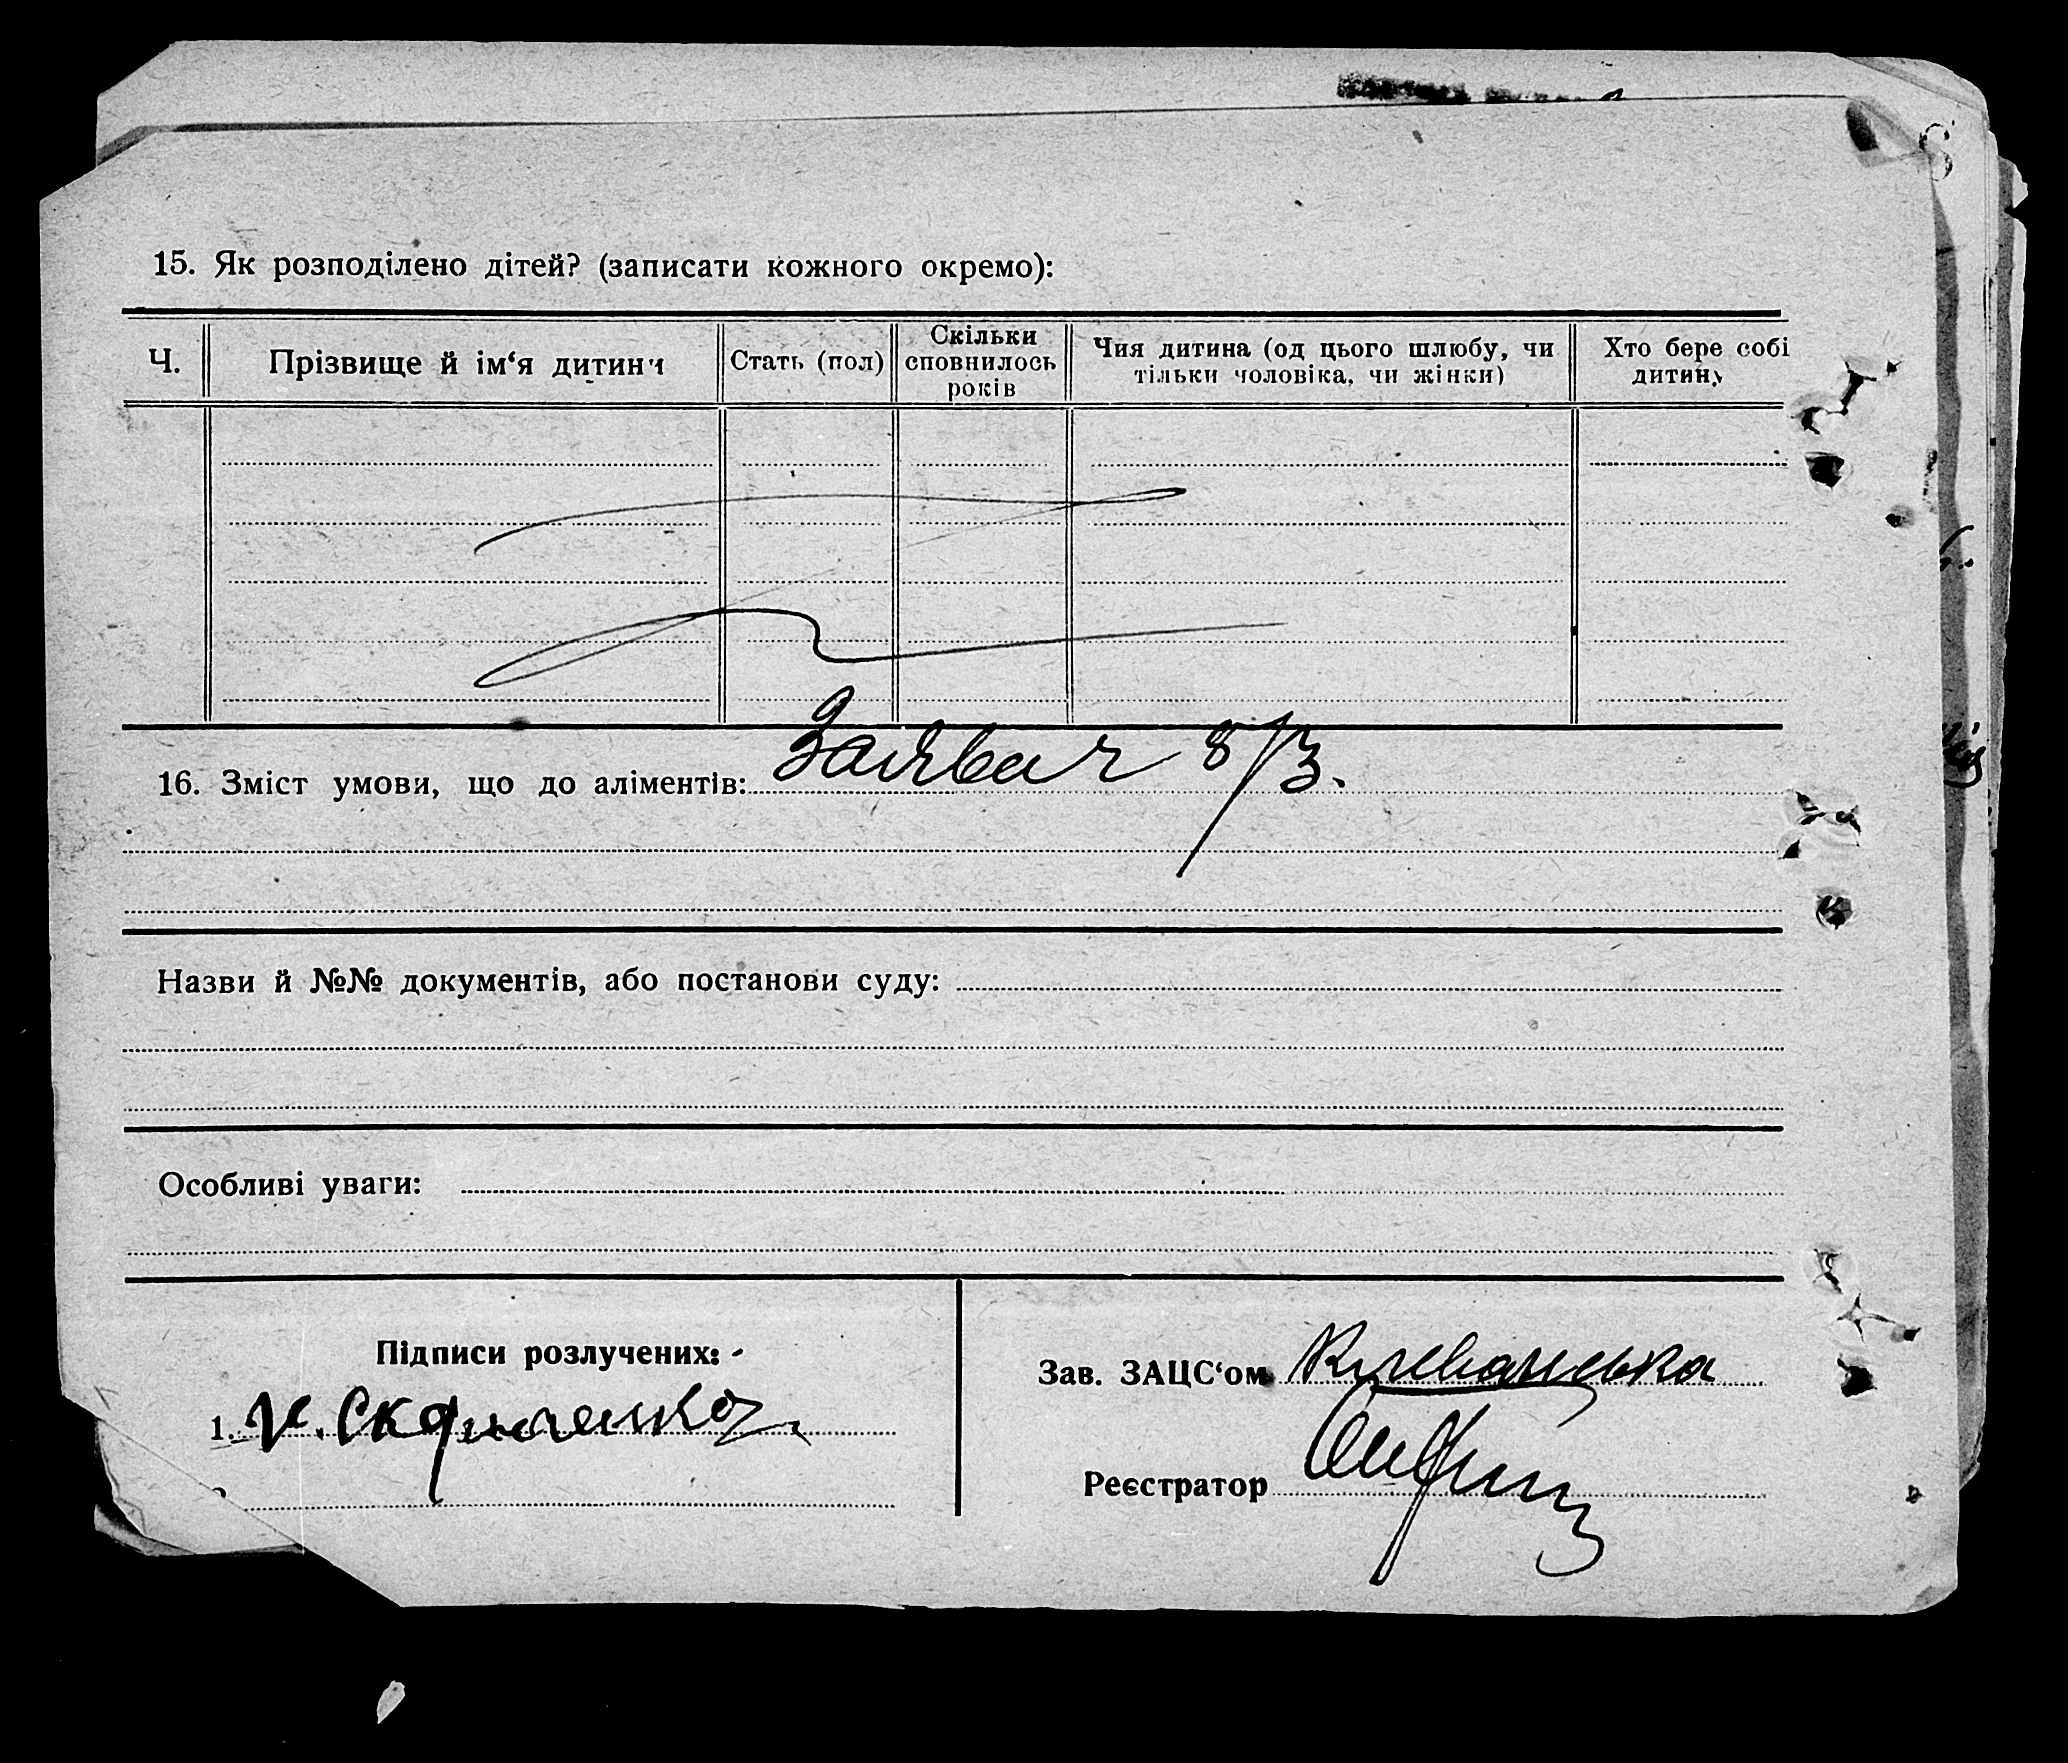 15. Як розподілено дітей? (записати кожного окремо):
Ч.
Прізвище й ім‘я дитини
Стать (пол)
Скільки
сповнилось
років
Чия дитина (од цього шлюбу, чи
тільки чоловіка, чи жінки)
Хто бере собі
дитину
16. Зміст умови, що до аліментів: Заявач 8/3.
Назви й №№ документів, або постанови суду:
Особливі уваги:
Підписи розлучених:
1.
2
Зав. ЗАЦС‘ом
Реєстратор